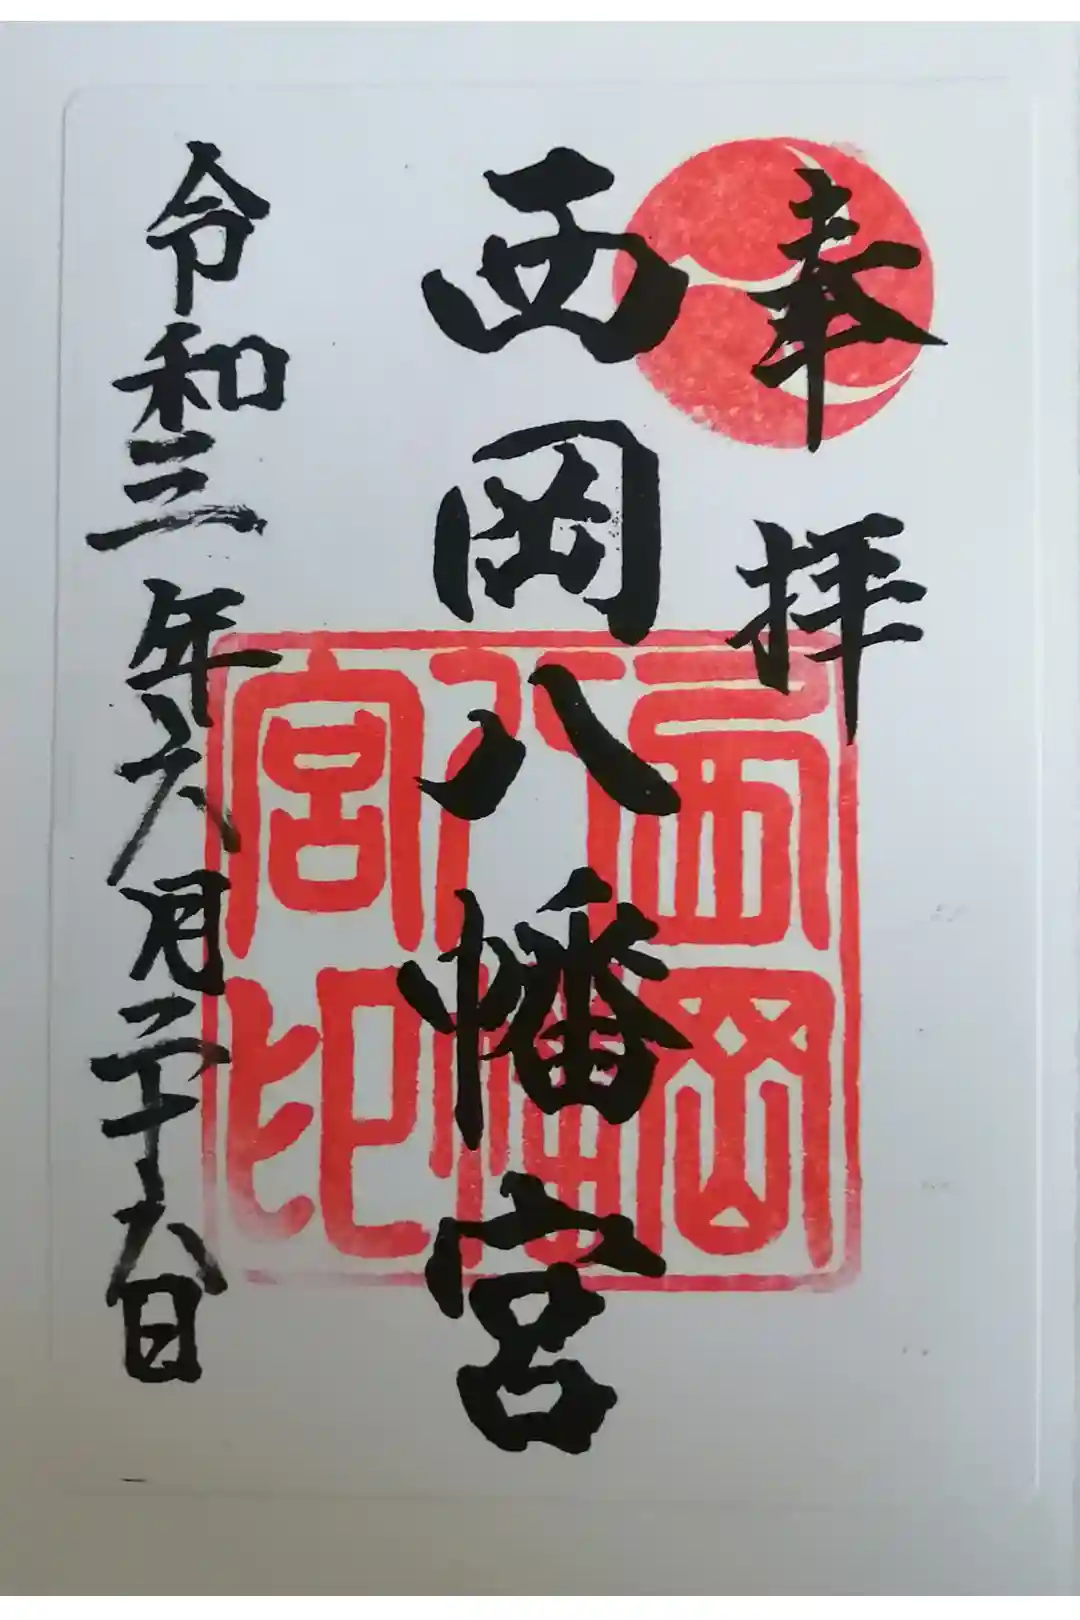 奉拝
西岡八幡宮
西岡八幡宮印
令和三年六月二十六日